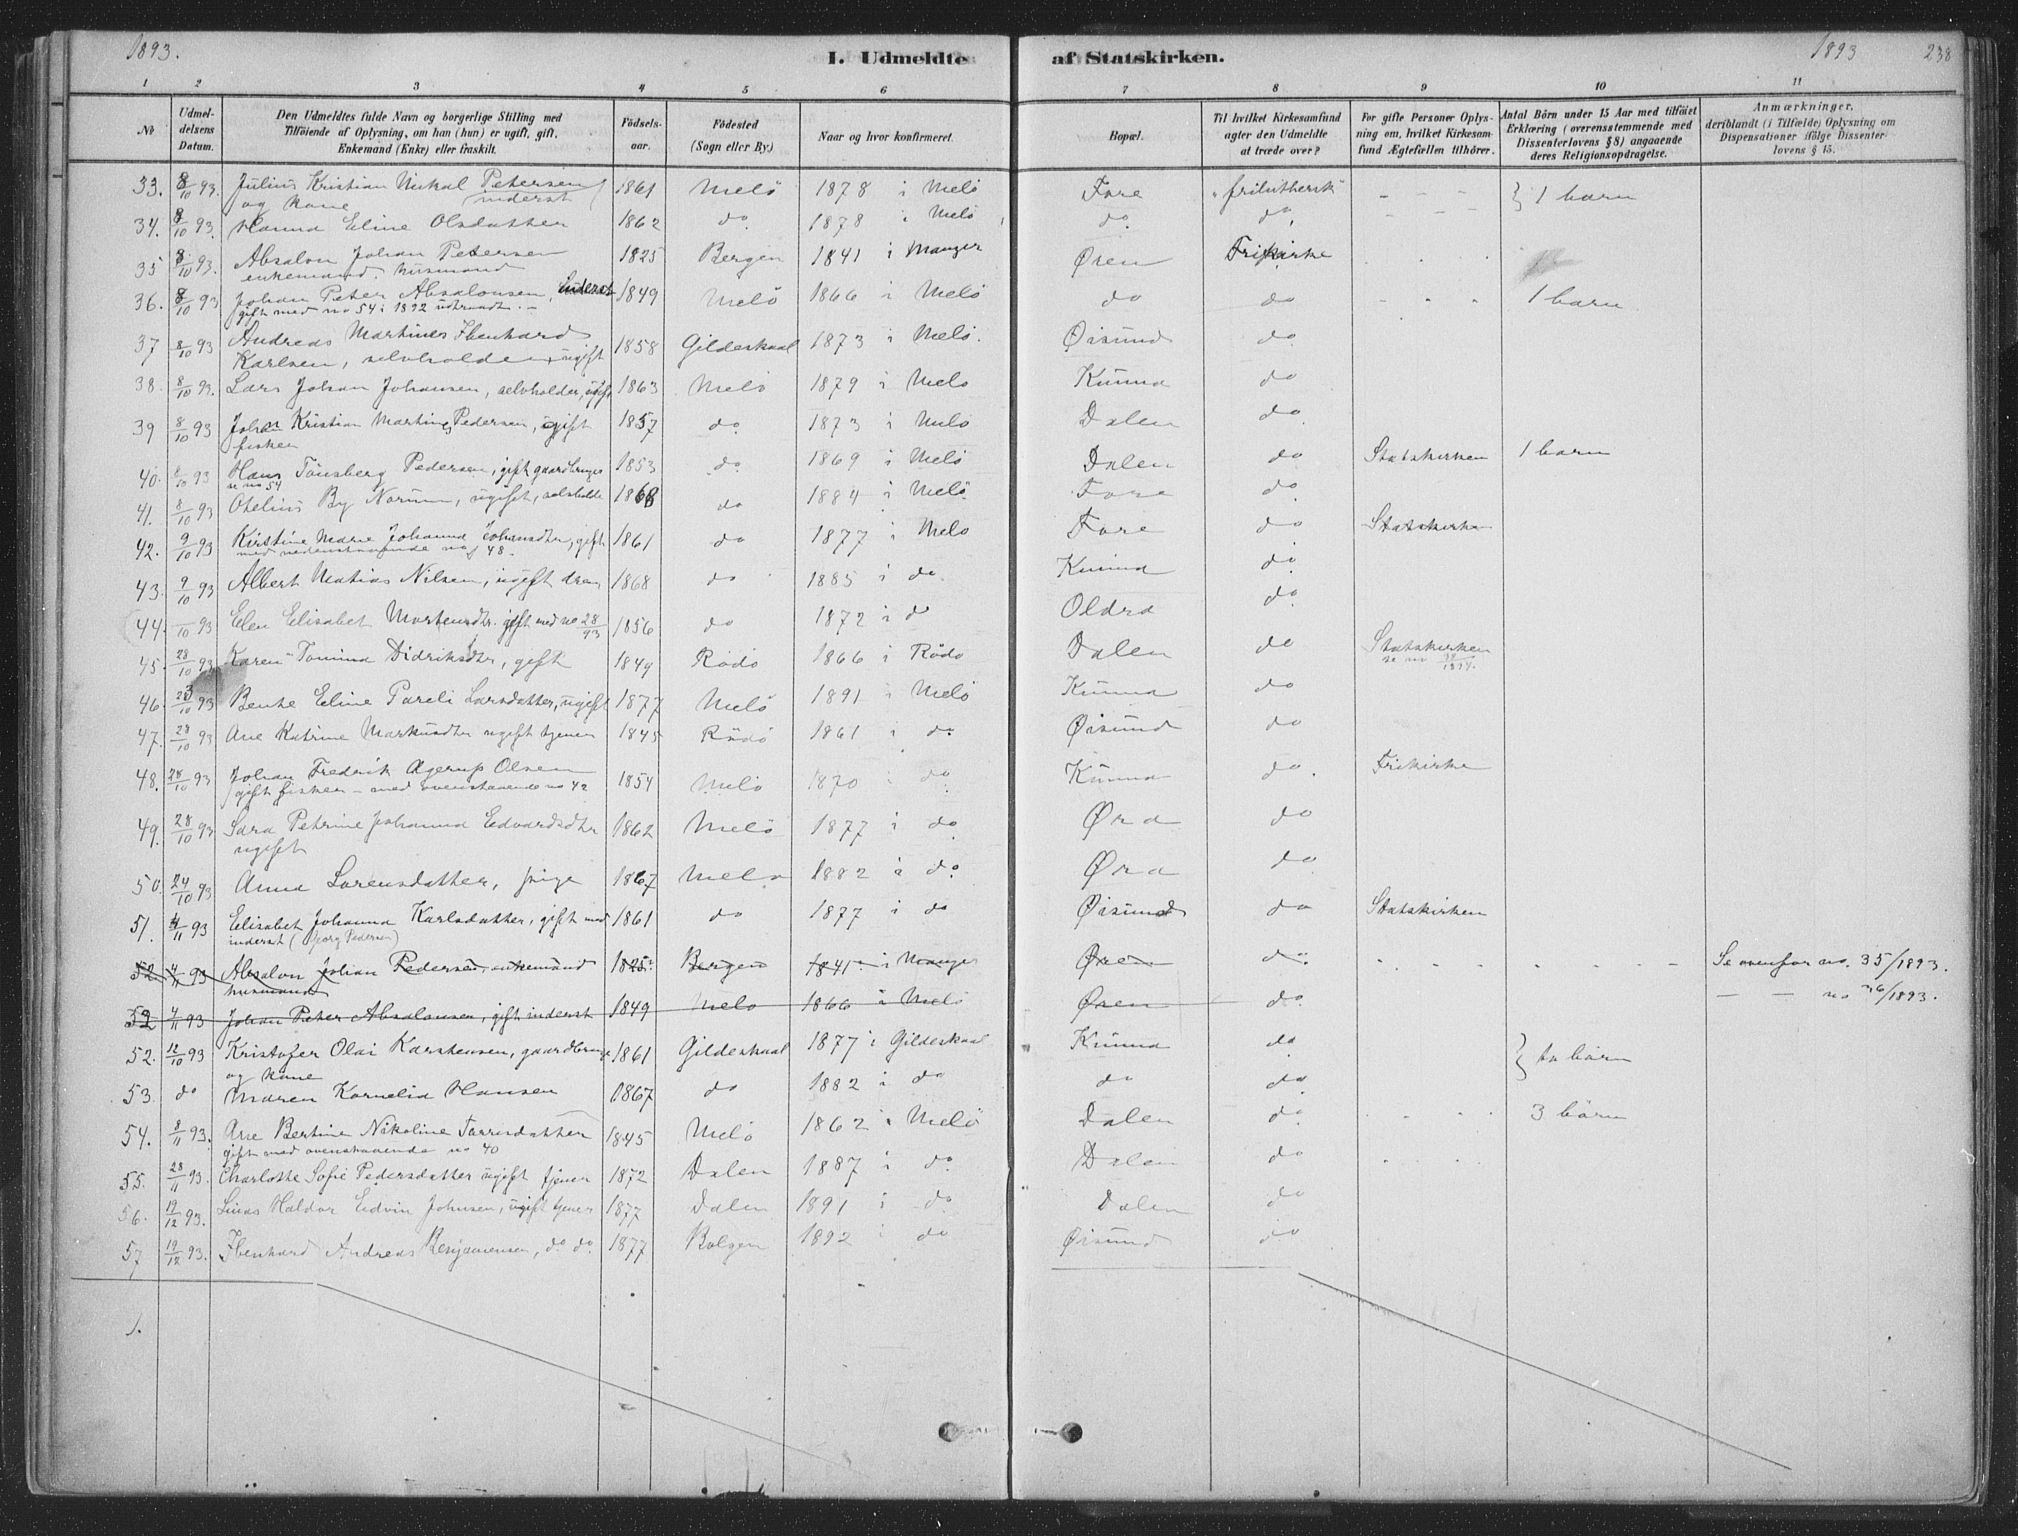 1893.
I. Udmeldte af Statskirken.
1893 238
1 2 3 4 5 6 7 8 9 10 11
No
Udmeldelsens Datum.
Den Udmeldtes fulde Navn og borgerlige Stilling med
Tilföiende af Oplysning, om han (hun) er ugift, gift,
Enkemand (Enke) eller fraskilt.
Födselsaar.
Födested
(Sogn eller By.)
Naar og hvor konfirmeret.
Bopæl.
Til hvilket Kirkesamfund
agter den Udmeldte
at træde over?
For gifte Personer Oplysning
om, hvilket Kirkesamfund
Ægtefællen tilhörer.
Antal Börn under 15 Aar med tilföiet
Erklæring (overensstemmende med
Dissenterlovens § 8) angaaende
deres Religionsopdragelse.
Anmærkninger,
deriblandt (i Tilfælde) Oplysning om
Dispensationer ifölge Dissenterlovens
§ 15.
33. 8/10 93. Julius Kristian Mikal Petersen 1861 Melö 1878 i Melö Fore friluthersk - - - } 1 barn
og Kone inderst
34. 8/10 93. Hanna Eline Olsdatter 1862 do 1878 i Melö do do - - -
35 8/10 93. Absalon Johan Petersen 1825 Bergen 1841 i Manger Øren Frikirke
enkemand. husmand
36. 8/10 93 Johan Peter Absalonsen, inderst 1849 Melö 1866 i Melö do do - - - 1 barn
gift med no 54 i 1892 udtraadt. -
37 8/10 93 Andreas Martines Ibenhard
Karlsen, selvholder, ugift 1858 Gildeskaal 1873 i Melö. Øisund do
38. 8/10 93. Lars Johan Johansen, selvholder, ugift 1863 Melö 1879 i Melö Kunna do
39 8/10 93 Johan Kristian Martines Pedersen, ugift 1857 do 1873 i Melö Dalen do
fisker
40. 8/10 93 Hans Tönsberg Pedersen, gift gaardbruger 1853 do 1869 i Melö Dalen do Statskirken 1 barn
se no 54
41. 8/10 93 Otelius By Norum, ugift, selvholde 1868 do 1884 i Melö Fore do
42. 9/10 93 Kirstine Marie Johanna Johansdtr, gift 1861 do 1877 i Melö Fore do Statskirken
med nedenstaaende no 48.
43. 9/10 93 Albert Matias Nilsen, ugift dren 1868 do 1883 i do Kunna do
44. /10 93 Elen Elisabet Mortensdtr. gift med no 28/93 1856 do 1872 i do Oldra do
45. 28/10 93 Karen Tomina Didriksdtr, gift 1849 Rödö 1866 i Rödö Dalen do Statskirken
se no 38/1894.
46. 23/10 93 Bentse Eline Pareli Larsdatter, ugift 1877 Melö 1891 i Melö Kunna do
47. 28/10 93 Ane Katrine Markusdtr ugift tjener 1845 Rödö 1861 i do Øisund do
48. 28/10 93 Johan Fredrik Agerup Olsen 1854 Melö 1870 i do Kunna do. Frikirke
gift fisker - med ovenstaaende no 42
49. 28/10 93 Sara Petrine Johanna Edvardsdtr 1862 Melö 1877 i do Øra do
ugift
50. 24/10 93 Anna Lorensdatter, pige 1867 Melö 1882 i do. Øra do
51. 4/11 93 Elisabet Johanna Karlsdatter, gift med 1861 do 1877 i do Øisund do Statskirken
inderst (Georg Pedersen)
52 4/11 93 Absalon Johan Pedersen, enkemand 1825 Bergen 1841 i Manger Øren do. Se ovenfor no. 35/1893.
husmand
52 4/11 93 Johan Peter Absalonsen, gift inderst 1849 Melö 1866 i Melö Øren do. — — no 36/1893.
52. 12/10 93 Kristofer Olai Karstensen, gaardbruge 1861 Gildeskaal 1877 i Gildeskaal Kunna do } to börn
og Kone
53. do Maren Kornelia Hansen 1867 do 1882 i do do do
54. 8/11 93. Ane Bertine Nikoline Tarrisdatter 1845 Melö 1862 i Melö Dalen do 3 börn
gift med ovenstaaende no 40
55. 28/11 93. Charlotte Sofie Pedersdatter ugift tjener 1872 Dalen 1887 i do Dalen do
56. 19/12 93. Linas Haldor Edvin Johnsen, ugift tjener 1877 Dalen 1891 i do Dalen do
57 19/12 93. Ibenhard Andreas Benjaminsen, do do. 1877 Bolgen 1892 i do Øisund do
1.